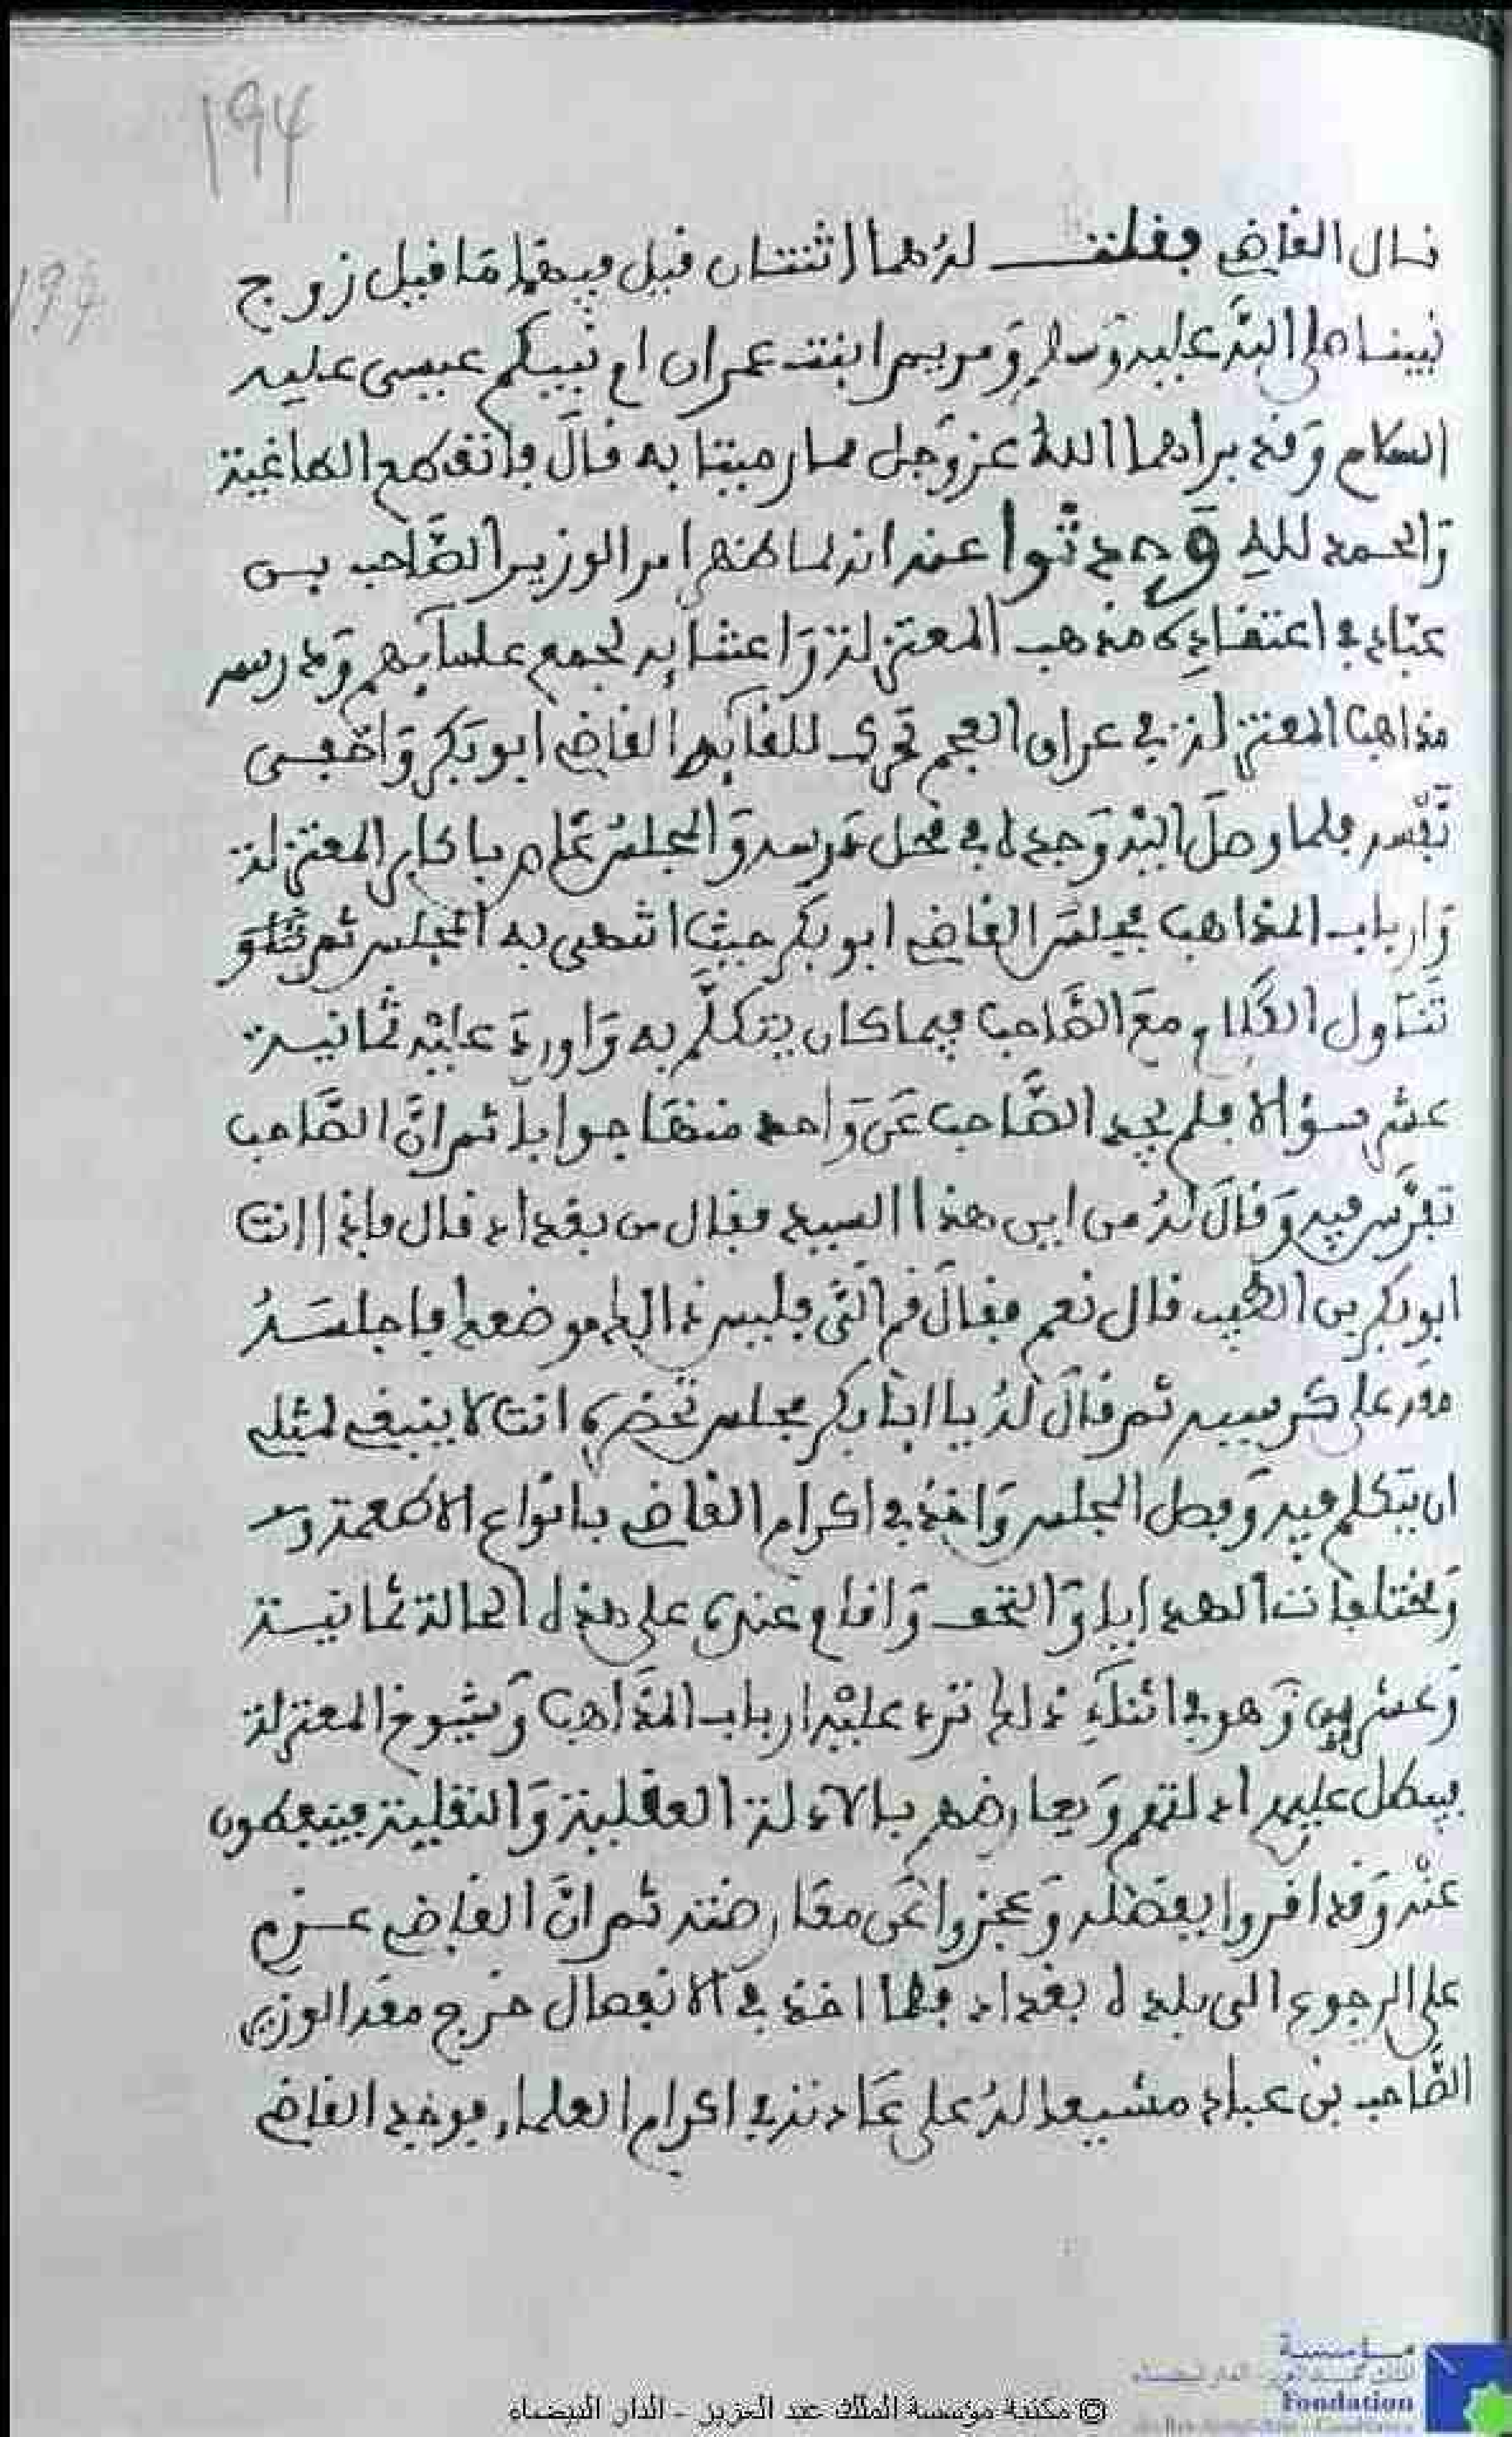 194
199
قال القاضي فقلت له هما اثنتان قيل فيهما ما قيل زوج
نبينا صلى الله عليه وسلم ومريم ابنت عمران ام نبيكم عيسى عليه
السلام وقد براهما الله عز وجل مما رميتا به قال فانقطع الطاغية
والحمد لله وحدثوا عنه انه لما ظهر امر الوزير الصاحب بن
عباد في اعتقاده مذهب المعتزلة واعتنايه لجمع علمايهم وتدريس
مذاهب المعتزلة في عراق العجم تحرك للقايهم القاضي ابو بكر واخفى
نفسه فلما وصل اليه وجده في محل تدريسه والمجلس غاص باكابر المعتزلة
وارباب المذاهب فجلس القاضي ابو بكر حيث انتهى به المجلس ثم
تناول الكلام مع الصاحب فيما كان يتكلم به واورد عليه ثمانية
عشر سؤالا فلم يجد الصاحب عن واحد منها جوابا ثم ان الصاحب
تفرس فيه وقال له من اين هذا السيد فقال من بغداد قال فاذا انت
ابو بكر بن الطيب قال نعم فقال قم الي فليس ذالك موضعك فاجلسه
معه على كرسيه ثم قال له يا ابا بكر مجلس تحضره انت لا ينبغي لمثلي
ان يتكلم فيه وفصل المجلس واخذ في اكرام القاضي بانواع الاطعمة
ومختلفات الهدايا والتحف واقام عنده على هذه الحالة ثمانية
وعشرين وهو في اثناء ذلك ترد عليه ارباب المذاهب وشيوخ المعتزلة
فيبطل عليهم ادلتهم ويعارضهم بالادلة العقلية والنقلية فينقطعون
عنه وقد اقروا بفضله وعجزوا عن معارضته ثم ان القاضي عزم
على الرجوع الى بلده بغداد فلما اخذ في الانفصال خرج معه الوزير
الصاحب بن عباد مشيعا له على عادته في اكرام العلماء فوجد القاضي
© مكتبة مؤسسة الملك عبد العزيز - الدار البيضاء
مؤسسة
Fondation